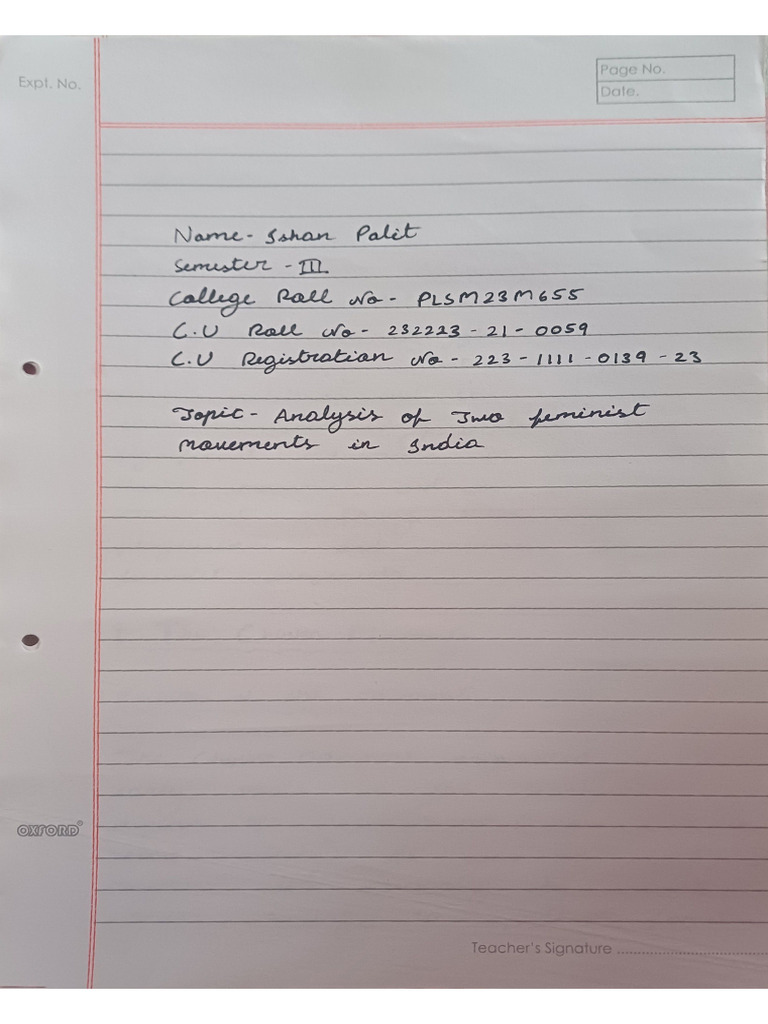 Expt. No.
Page No.
Date.
Name - Ishan Palit
Semester - III
College Roll No - PLSM23M655
C.U Roll No - 232223 - 21 - 0059
C.U Registration No - 223 - 1111 - 0139 - 23
Topic - Analysis of Two feminist
movements in India
OXFORD®
Teacher's Signature ..........................